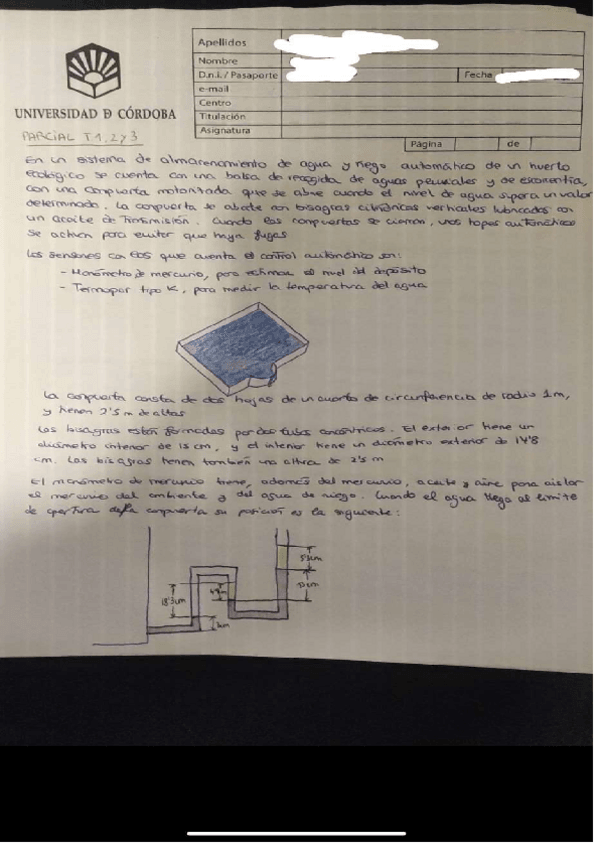 UNIVERSIDAD Ð CÓRDOBA
PARCIAL T.1, 2 y 3
Apellidos
Nombre
D.n.i./ Pasaporte Fecha
e-mail
Centro
Titulación
Asignatura
Página de
En un sistema de almacenamiento de agua y riego automático de un huerto
ecológico se cuenta con una balsa de recogida de aguas pluviales y de escorrentía,
con una compuerta motorizada que se abre cuando el nivel de agua supera un valor
determinado. La compuerta se abate con bisagras cilíndricas verticales lubricadas con
un aceite de transmisión. Cuando las compuertas se cierran, unos topes automáticos
se activan para evitar que haya fugas
Los sensores con los que cuenta el control automático son:
- Manómetro de mercurio, para estimar el nivel del depósito
- Termopar tipo K, para medir la temperatura del agua
La compuerta consta de dos hojas de un cuarto de circunferencia de radio 1m,
y tienen 2'5 m de altas
Las bisagras están formadas por dos tubos concéntricos. El exterior tiene un
diámetro interior de 15 cm, y el interior tiene un diámetro exterior de 14'8
cm. Las bisagras tienen también una altura de 2'5 m
El manómetro de mercurio tiene, además del mercurio, aceite y aire para aislar
el mercurio del ambiente y del agua de riego. Cuando el agua llega al límite
de apertura de la compuerta su posición es la siguiente:
18'3cm